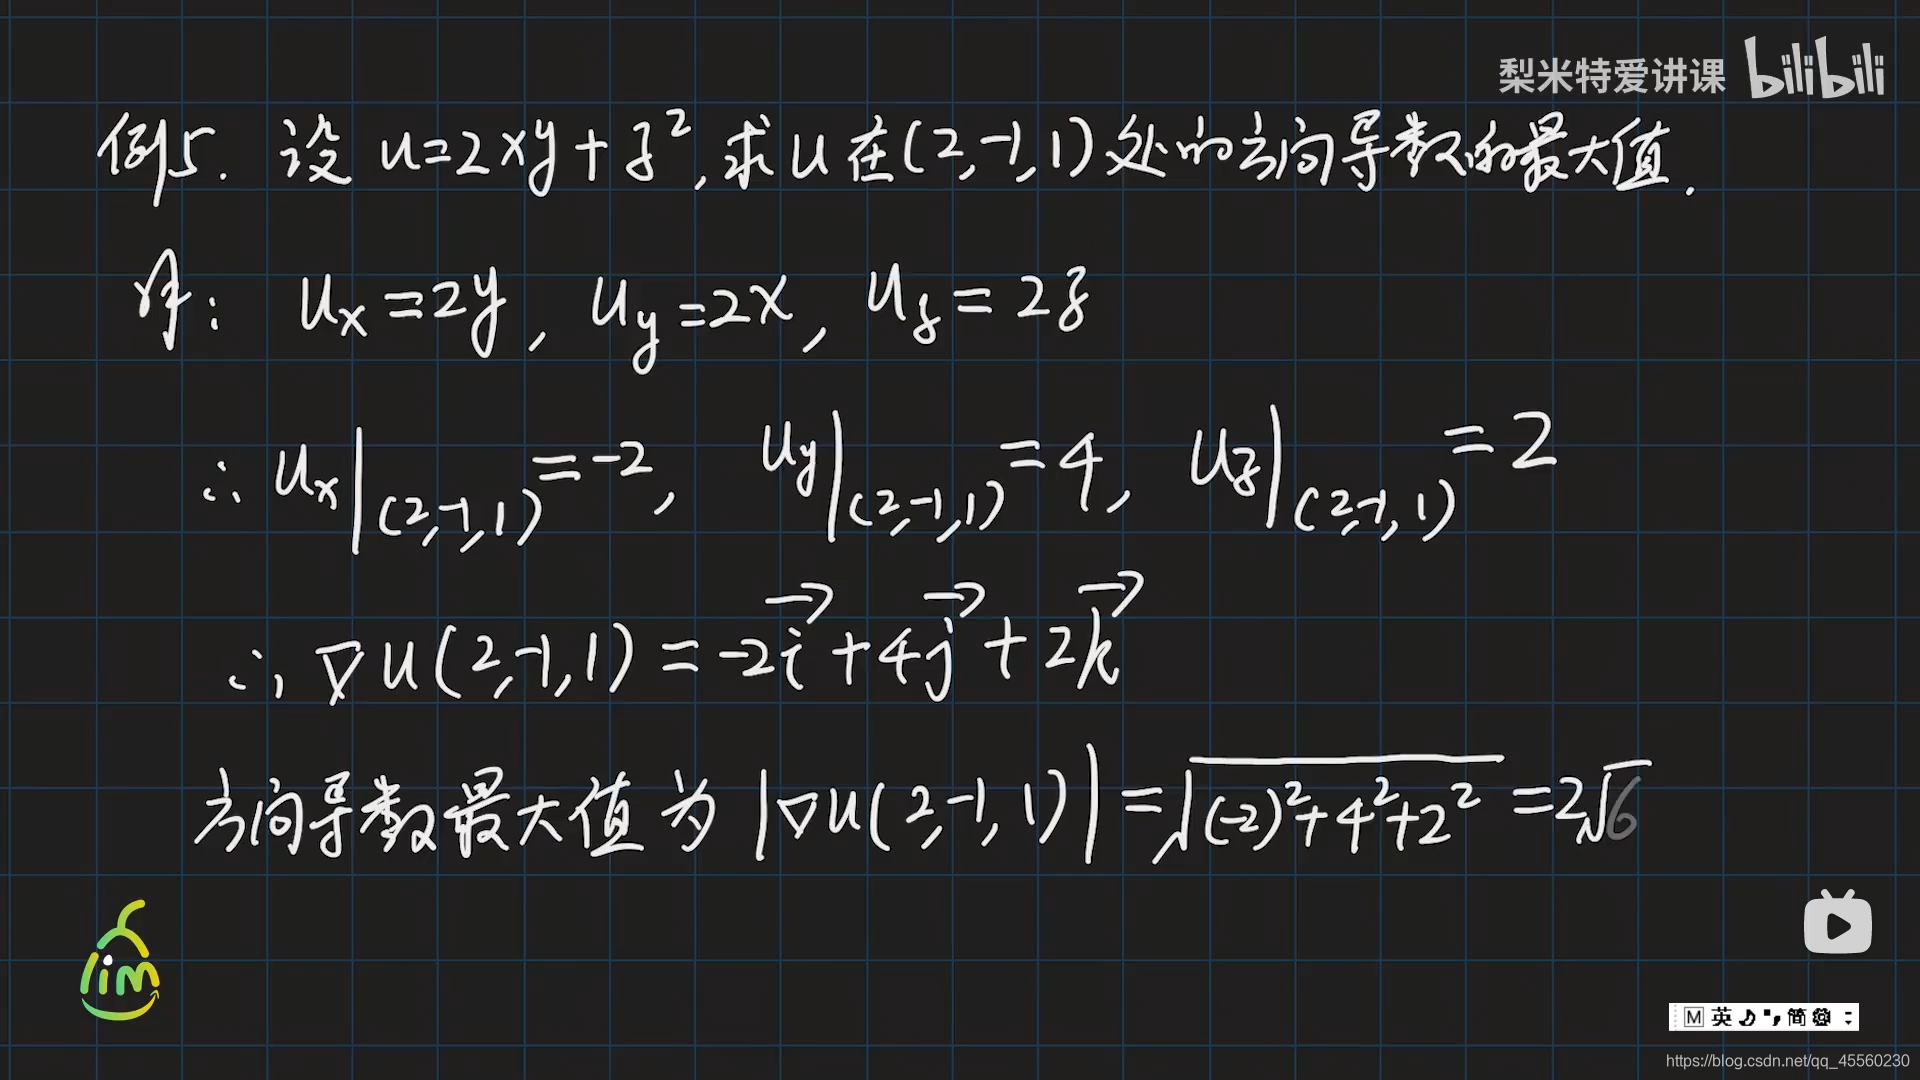 梨米特爱讲课 bilibili
例5. 设 u=2xy+z², 求u在(2,-1,1)处的方向导数的最大值.
解: uₓ=2y, u_y=2x, u_z=2z
∴ uₓ|(2,-1,1)=-2, u_y|(2,-1,1)=4, u_z|(2,-1,1)=2
∴ ∇u(2,-1,1)=-2i⃗+4j⃗+2k⃗
方向导数最大值为 |∇u(2,-1,1)|=√((-2)²+4²+2²)=2√6
lim
M 英 简
https://blog.csdn.net/qq_45560230